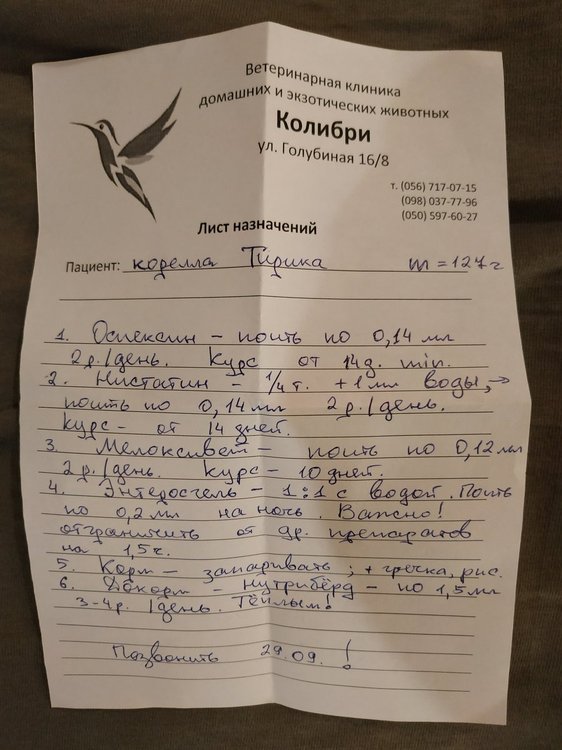 Ветеринарная клиника
домашних и экзотических животных
Колибри
ул. Голубиная 16/8
т. (056) 717-07-15
(098) 037-77-96
(050) 597-60-27
Лист назначений
Пациент: корелла Тидика m = 127 г
1. Оспексин – поить по 0,14 мл
2 р./день. Курс от 14 д. min.
2. Нистатин – 1/4 т. + 1 мл воды, →
поить по 0,14 мл 2 р./день.
Курс – от 14 дней.
3. Мелоксивет – поить по 0,12 мл
2 р./день. Курс – 10 дней.
4. Энтеросгель – 1:1 с водой. Поить
по 0,2 мл на ночь. Важно!
отграничить от др. препаратов
на 1,5 ч.
5. Корм – запаривать; + гречка, рис.
6. Докорм – нутриберд – по 1,5 мл
3-4 р. /день. Тёплым!
Позвонить 29.09. !